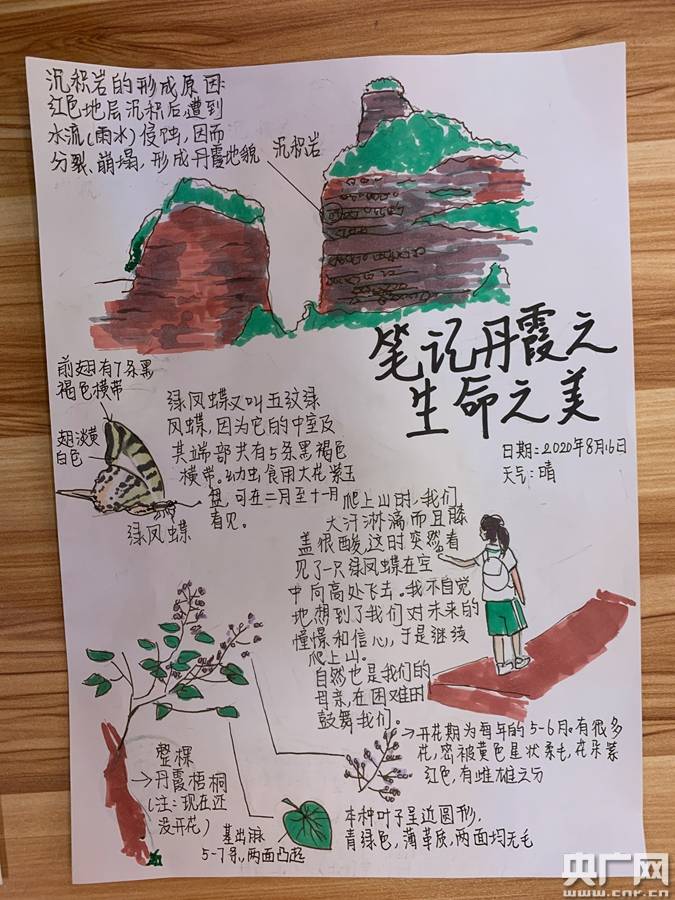 沉积岩的形成原因:
红色地层沉积后,遭到
水流(雨水)侵蚀,因而
分裂、崩塌,形成丹霞地貌
沉积岩
笔记丹霞之
生命之美
日期:2020年8月16日
天气:晴
前翅有7条黑
褐色横带
翅淡黄
白色
绿凤蝶
绿凤蝶又叫五纹绿
凤蝶,因为它的中室及
其端部共有5条黑褐色
横带。幼虫食用大花紫玉
盘,可在二月至十月
看见。
爬上山时,我们
大汗淋漓而且膝
盖很酸,这时突然看
见了一只绿凤蝶在空
中向高处飞去。我不自觉
地想到了我们对未来的
憧憬和信心,于是继续
爬上山。
自然也是我们的
母亲,在困难时
鼓舞我们。
开花期为每年的5-6月。有很多
花,密被黄色星状柔毛,花朵紫
红色,有雌雄之分
整棵
丹霞梧桐
(注:现在还
没开花)
基出脉
5-7条,两面凸起
本种叶子呈近圆形,
青绿色,薄革质,两面均无毛
央广网
www.cnr.cn